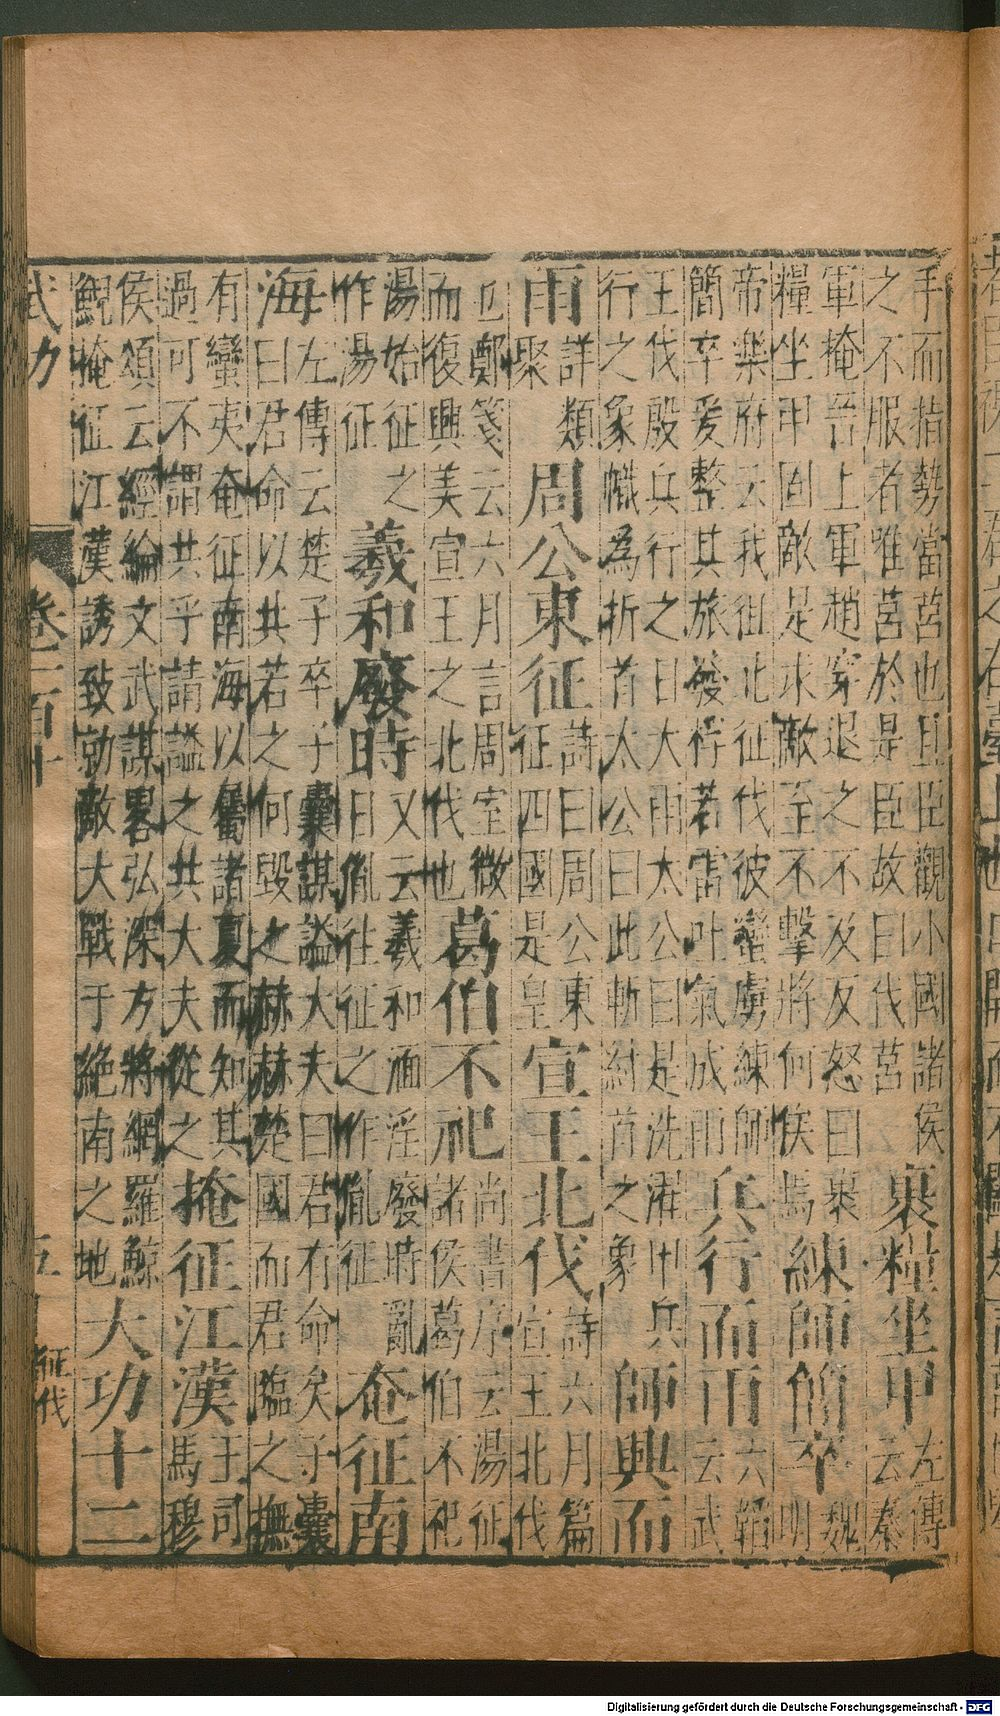 手而指勢當莒也且臣觀小國諸侯
之不服者唯莒於是臣故曰伐莒
裹糧坐甲
左傳
云秦
軍掩晉上軍趙穿追之不及反怒曰裹
糧坐甲固敵是求敵至不擊將何俟焉
練師簡卒
魏
明
帝樂府云我徂北征伐彼蠻虜練師
簡卒爰整其旅發桴若雷吐氣成雨
兵行而雨
六韜
云武
王伐殷兵行之日大雨太公曰是洗濯甲兵
行之象幟為折首太公曰此斬紂首之象
師興而
雨
詳類
聚
周公東征
詩曰周公東
征四國是皇
宣王北伐
詩六月篇
宣王北伐
也鄭箋云六月言周室微
而復興美宣王之北伐也
葛伯不祀
尚書序云湯征
諸侯葛伯不祀
湯始征之
作湯征
羲和廢時
又云羲和湎淫廢時亂
日胤往征之作胤征
奄征南
海
左傳云楚子卒子囊謀謚大夫曰君有命矣子囊
曰君命以共若之何毀之赫赫楚國而君臨之撫
有蠻夷奄征南海以屬諸夏而知其
過可不謂共乎請謚之共大夫從之
掩征江漢
王司
馬穆
侯頌云經綸文武謀畧弘深方將網羅鯨
鯢掩征江漢誘致勍敵大戰于絕南之地
大功十二
武功
卷一百十
五
征伐
Digitalisierung gefördert durch die Deutsche Forschungsgemeinschaft - DFG